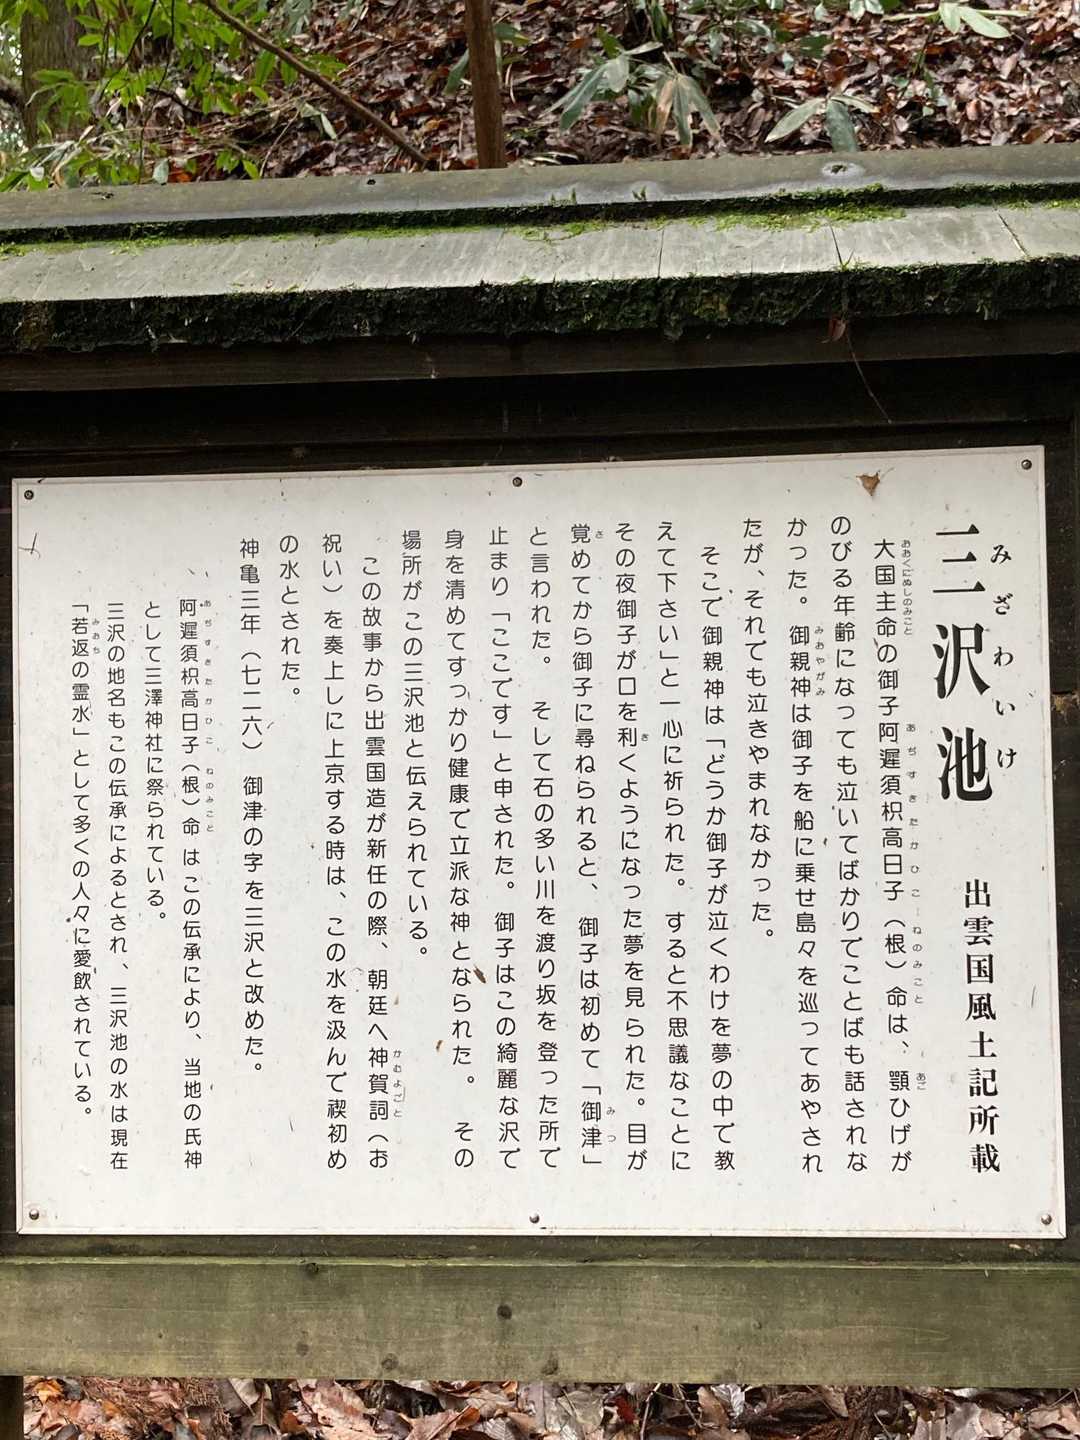 三沢池 出雲国風土記所載
みざわいけ
大国主命の御子阿遅須枳高日子（根）命は、顎ひげが
のびる年齢になっても泣いてばかりでことばも話されな
かった。御親神は御子を船に乗せ島々を巡ってあやされ
たが、それでも泣きやまれなかった。
そこで御親神は「どうか御子が泣くわけを夢の中で教
えて下さい」と一心に祈られた。すると不思議なことに
その夜御子が口を利くようになった夢を見られた。目が
覚めてから御子に尋ねられると、御子は初めて「御津」
と言われた。そして石の多い川を渡り坂を登った所で
止まり「ここです」と申された。御子はこの綺麗な沢で
身を清めてすっかり健康で立派な神となられた。その
場所がこの三沢池と伝えられている。
この故事から出雲国造が新任の際、朝廷へ神賀詞（お
祝い）を奏上しに上京する時は、この水を汲んで禊初め
の水とされた。
神亀三年（七二六）御津の字を三沢と改めた。
阿遅須枳高日子（根）命はこの伝承により、当地の氏神
として三澤神社に祭られている。
三沢の地名もこの伝承によるとされ、三沢池の水は現在
「若返の霊水」として多くの人々に愛飲されている。